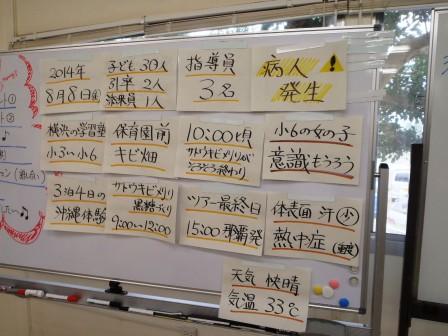 2014年
8月8日(金)
子ども 30人
引率 2人
添乗員 1人
指導員
3名
病人
発生
横浜の学習塾
小3～小6
保育園前
キビ畑
10:00頃
サトウキビメリリが
そろそろ終わり
小6の女の子
意識もうろう
3泊4日の
沖縄体験
サトウキビメリリ
黒糖づくり
9:00～12:00
ツアー最終日
15:00 那覇発
体表面 汗(少)
熱中症(重度)
天気 快晴
気温 33℃